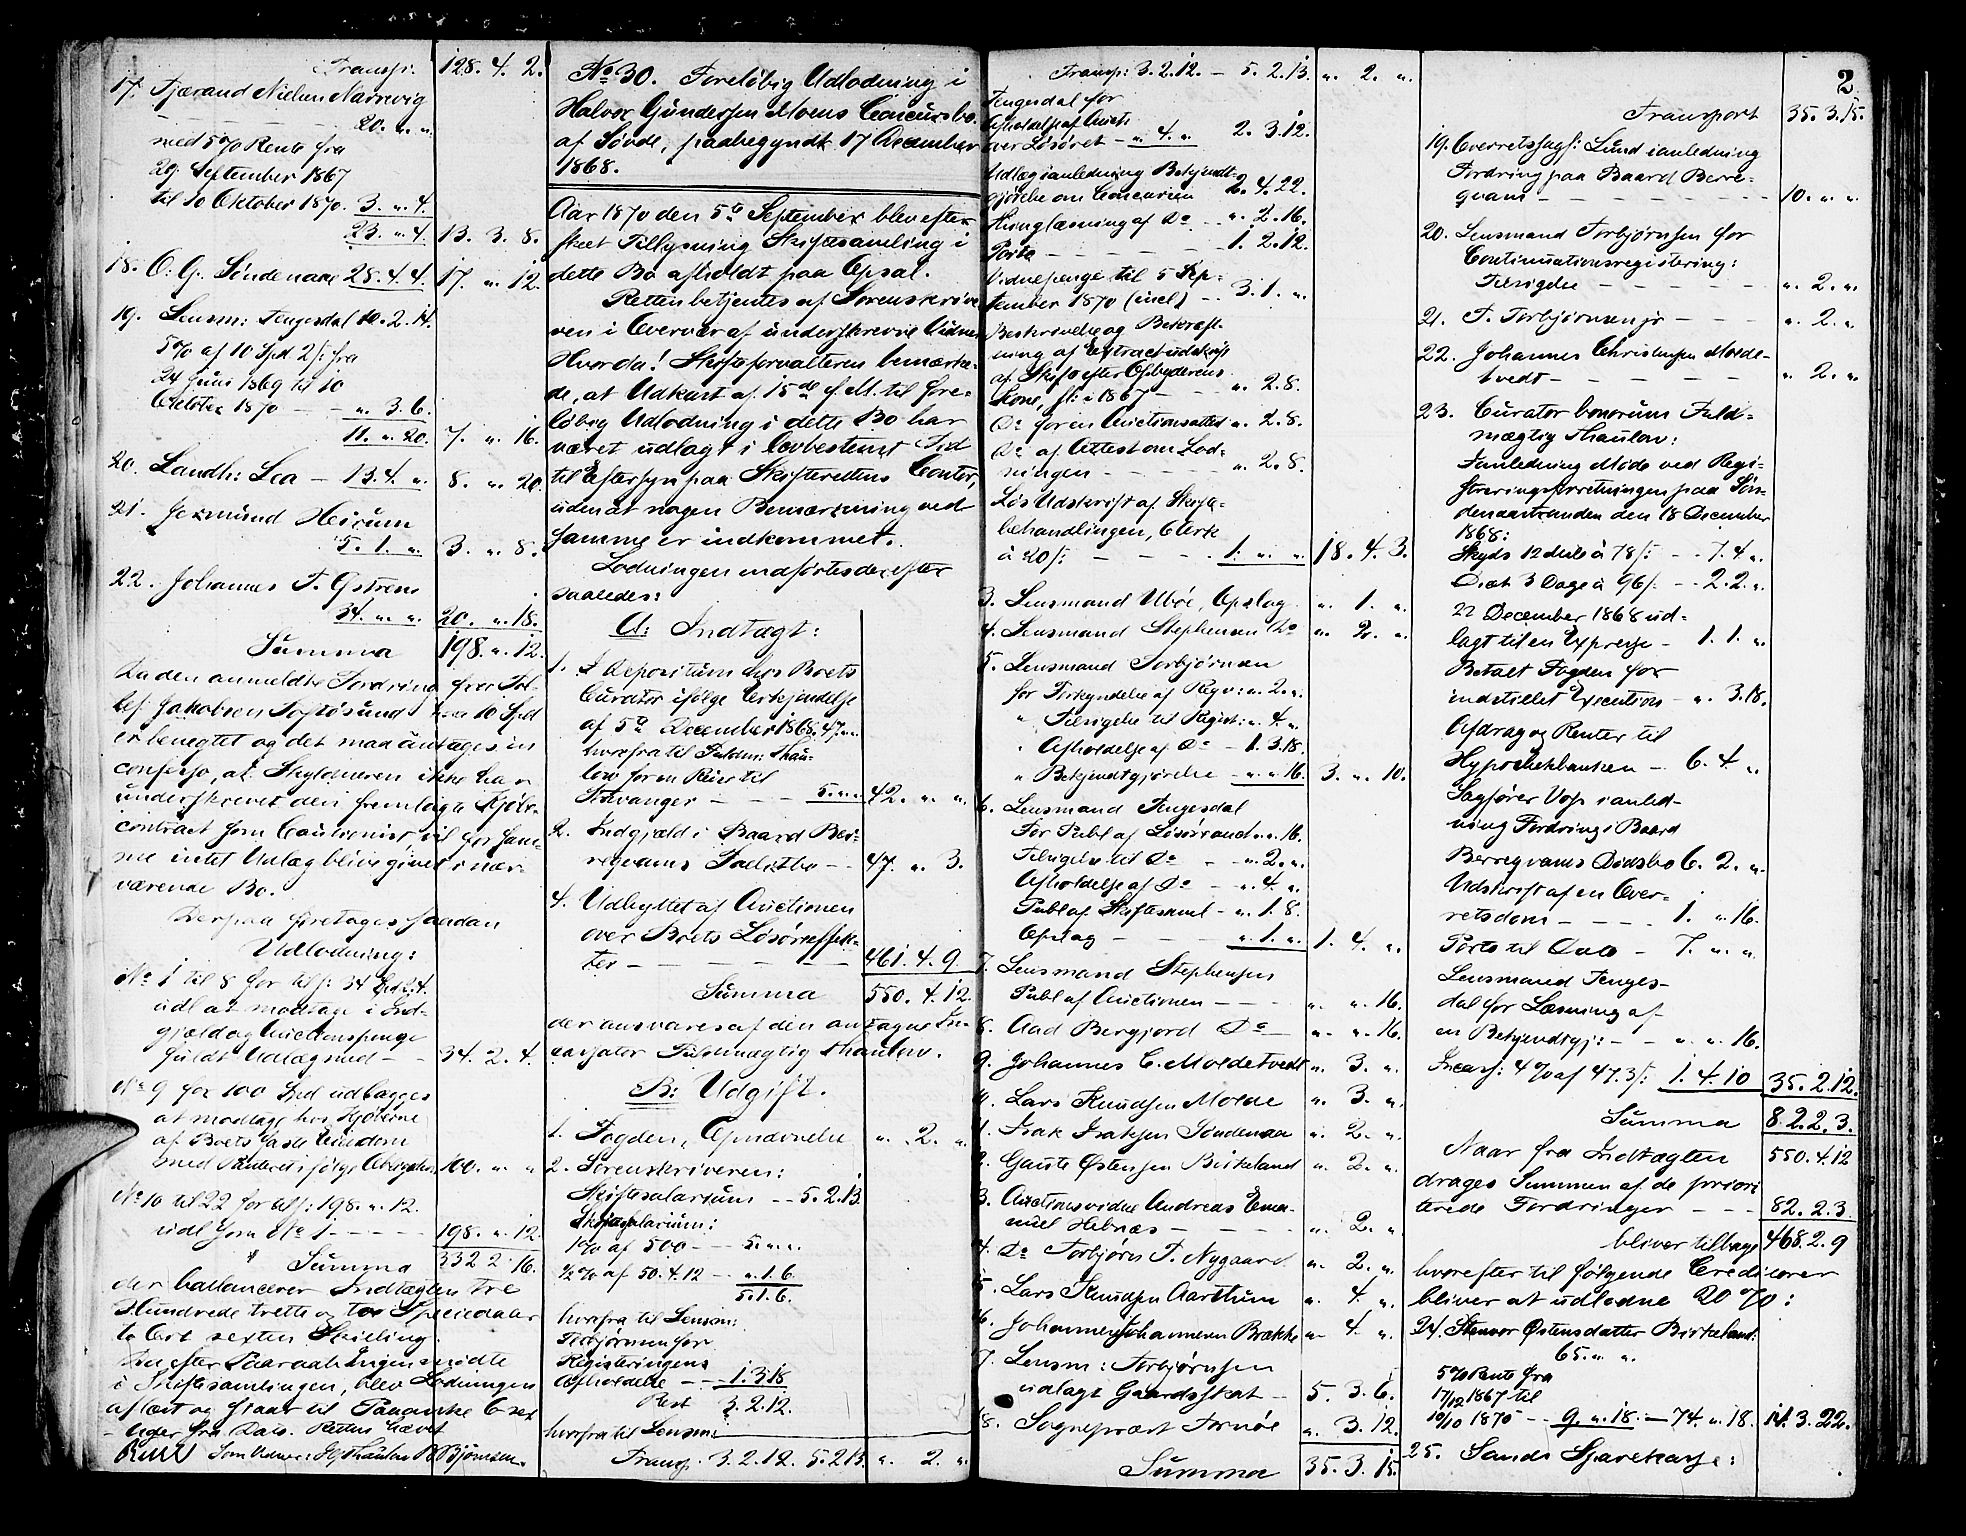 Transp. 128. 4. 2.
17. Tjærand Nielsen Narrevig
20. „. „.
med 5% Rente fra
29. September 1867
til 10 Oktober 1870. 3. „. 4.
23. „. 4. 13. 3. 8.
18. O. G. Söndenaae 28. 4. 4. 17. „. 12.
19. Lensm: Tengesdal 10. 2. 14.
5% af 10 Spd 2 f: fra
24 Juni 1869 til 10
Oktober 1870 - - „. 3. 6.
11. „. 20. 7. „. 16.
20. Landh: Lea - 13. 4. „. 8. „. 20.
21. Jermund Heirum
5. 1. „. 3. „. 8.
22. Johannes T. Østrem
34. „. „. 20. „. 18.
Summa 198. „. 12.
Da den anmeldte Fordring fra Tol-
lef Jakobsen Toftösund for 10 Spd
er benegtet og det maa antages in
confesso, at Skyldneren ikke har
underskrevet den fremlagte Kjöbe-
contract som Cautionist, vil for sam-
me intet Udlæg blive givet i nær-
værende Bo.
Derpaa foretoges saadan
Udlodning:
No 1 til 8 for tils: 34 Spd 2. 4.
udl at modtage i Ind-
gjæld og Auctionspenge
fuldt Udlæg med - - 34. 2. 4.
No 9 for 100 Spd udlægges
at modtage hos Kjöberne
af Boets faste Eiendom
med Panteret ifölge Obligation 100. „. „
No 10 til 22 for tils: 198. „. 12.
udl som No 1 - - - - 198. „. 12.
Summa 332 2. 16.
der ballancerer Indtægten tre
Hundrede tretti og to Speciedaler
to Ort sexten Skilling.
Da efter Paaraab Ingen mödte
i Skiftesamlingen, blev Lodningen
aflæst og staar til Paaanke 6 sex
Uger fra Dato. Retten hævet
Som Vidner: Hs Thaulow B. Bjørnsen.
No 30. Forelöbig Udlodning i
Halvor Gundersen Moens Concursbo
af Søvde, paabegyndt 17 December
1868.
Aar 1870 den 5te September blev efter
skeet Tillysning Skiftesamling i
dette Bo afholdt paa Opsal.
Retten betjentes af Sorenskrive
ren i Overvær af underskrevne Vidner
Hvorda! Skifteforvalteren bemærke-
de, at Udkast af 15de f. M. til fore-
löbig Udlodning i dette Bo har
været udlagt i lovbestemt Tid
til Eftersyn paa Skifterettens Contor,
uden at nogen Bemærkning ved
samme er indkommet.
Lodningen indförtes derefter
saaledes:
A: Indtægt:
1. I Depositum hos Boets
Curator ifölge Erkjendelse
af 5te December 1868. 47. „. „
hvorfra til Fuldm: Thau-
low for en Reise til
Stavanger - - - 5. „. „ 42. „. „.
2. Indgjæld i Baard Ber-
reqvams Fallitbo - - 47. „. 3.
4. Udbyttet af Auctionen
over Boets Lösöreeffek-
ter - - - - - - 461. 4. 9.
Summa 550. 4. 12.
der ansvares af den antagne In-
cassator Fuldmægtig Thaulow.
B: Udgift.
1. Fogden, Opmævnelse „. 2. „.
2. Sorenskriveren:
Skiftesalarium - - 5. 2. 13.
Skiftesalarium:
1% af 500 - - - 5. „. „.
½% af 50. 4. 12 - - „. 1. 6.
5. 1. 6.
hvorfra til Lensm:
Torbjörnsen for
Registeringens
Afholdelse - - - 1. 3. 18
Rest 3. 2. 12.
hvorfra til Lensm:
Transp. 3. 2. 12. 5. 2. 13. „. 2. „.
Transp: 3. 2. 12. - 5. 2. 13. „. 2. „.
Tengesdal for
Afholdelse af Aucti
over Lösöret - „. 4. „. 2. 3. 12.
Udlæg i anledning Bekjendt-
gjörelse om Concursen 2. 4. 22.
Thinglæsning af Do - - „. 2. 16.
Porto - - - - 1. 2. 12.
Vidnepenge til 5 Sep-
tember 1870 (incl) - - 3. 1. „.
Beskrivelse og Bekræft-
ning af Extractudskrift
af Skifte efter Opbyderens
Kone, sl: i 1867 - - - „. 2. 8.
Do for en Auctionsattest „. 2. 8.
Do af Attest om Lod-
ningen - - - - - „. 2. 8.
Løs Udskrift af Skifte-
behandlingen, 6 Ark
à 20 f: - - - - 1. „. „. 18. 4. 3.
3. Lensmand Uböe, Opslag „. 1. „.
4. Lensmand Stephensen Do „. 2. „.
5. Lensmand Torbjörnsen
for Forkyndelse af Reqv: „. 2. „.
„ Tilsigelse til Regist: „. 4. „.
„ Afholdelse af Do - 1. 3. 18.
„ Bekjendtgjörelse - „. „. 16. 3. „. 10.
6. Lensmand Tengesdal
For Publ af Lösöreaud „. „. 16.
Tilsigelse til Do - - „. 2. „.
Afholdelse af Do - - „. 4. „.
Publ af Skiftesaml - „. 1. 8.
Opslag - - - „. 1. „. 1. 4. „.
7. Lensmand Stephensen
Publ af Auctionen - - - „. „. 16.
8. Aad Bergjord Do - „. „. 16.
9. Johannes C. Moldetvedt „. 3. „.
Lars Knudsen Molde „. 3. „.
1. Isak Isaksen Söndenaa „. 2. „.
2. Gaute Østensen Birkeland „. 2. „.
3. Auctionsvidne Andreas Ema-
nuel Hebnæs - - - - „. 2. „.
4. Do Torbjörn T. Nygaard „. 2. „.
5. Lars Knudsen Aartun „. 4. „.
6. Johannes Johannesen Brække „. 4. „.
7. Lensm: Torbjörnsen
udlagt Gaardsskat - 5. 3. 6.
18. Sognepræst Tornöe „. 3. 12.
Summa 35. 3. 15.
2.
Transport 35. 3. 15.
19. Overretssagf: Lund ianledning
Fordring paa Baard Berre-
qvam - - - - - - 10. „. „.
20. Lensmand Torbjörnsen for
Continuationsregistering:
Tilsigelse - - - - - „. 2. „.
21. T. Torbjörnsen jr - - - „. 2. „.
22. Johannes Christensen Molde-
tvedt - - - - - „. 2. „.
23. Curator bonorum Fuld-
mægtig Thaulow:
Ianledning Möde ved Regi-
streringsforretningen paa Sön-
denaastranden den 18 December
1868:
Skyds 12 Mile à 78 f: - - 7. 4. „.
Diæt 3 Dage à 96 f: - - 2. 2. „.
22 December 1868 ud-
lagt til en Expresse - 1. 1. „.
Betalt Fogden for
indstillet Execution - „. 3. 18.
Afdrag og Renter til
Hypothekbanken - 6. 4. „.
Sagförer Voss ianled-
ning Fordring i Baard
Berreqvams Dödsbo 6. 2. „.
Udskrift af en Over-
retsdom - - - - 1. „. 16.
Porto til Dato - 7. „. „.
Lensmand Tenges-
dal for Læsning af
en Bekjendtgj: - - „. „. 16.
Incass: 4% af 47. 3 f: 1. 4. 10 35. 2. 12.
Summa 82. 2. 3.
Naar fra Indtægten 550. 4. 12
drages Summen af de priori
terede Fordringer - - - 82. 2. 3.
bliver tilbage 468. 2. 9
hvorefter til følgende Creditorer
bliver at udlodne 20%:
24. Stensor Østensdatter Birkeland:
65. „. „.
5% Rente fra
17/12 1867 til
10/10 1870 - - 9. „. 18. - 74. „. 18. 14. 3. 22.
25. Sands Sparekasse: